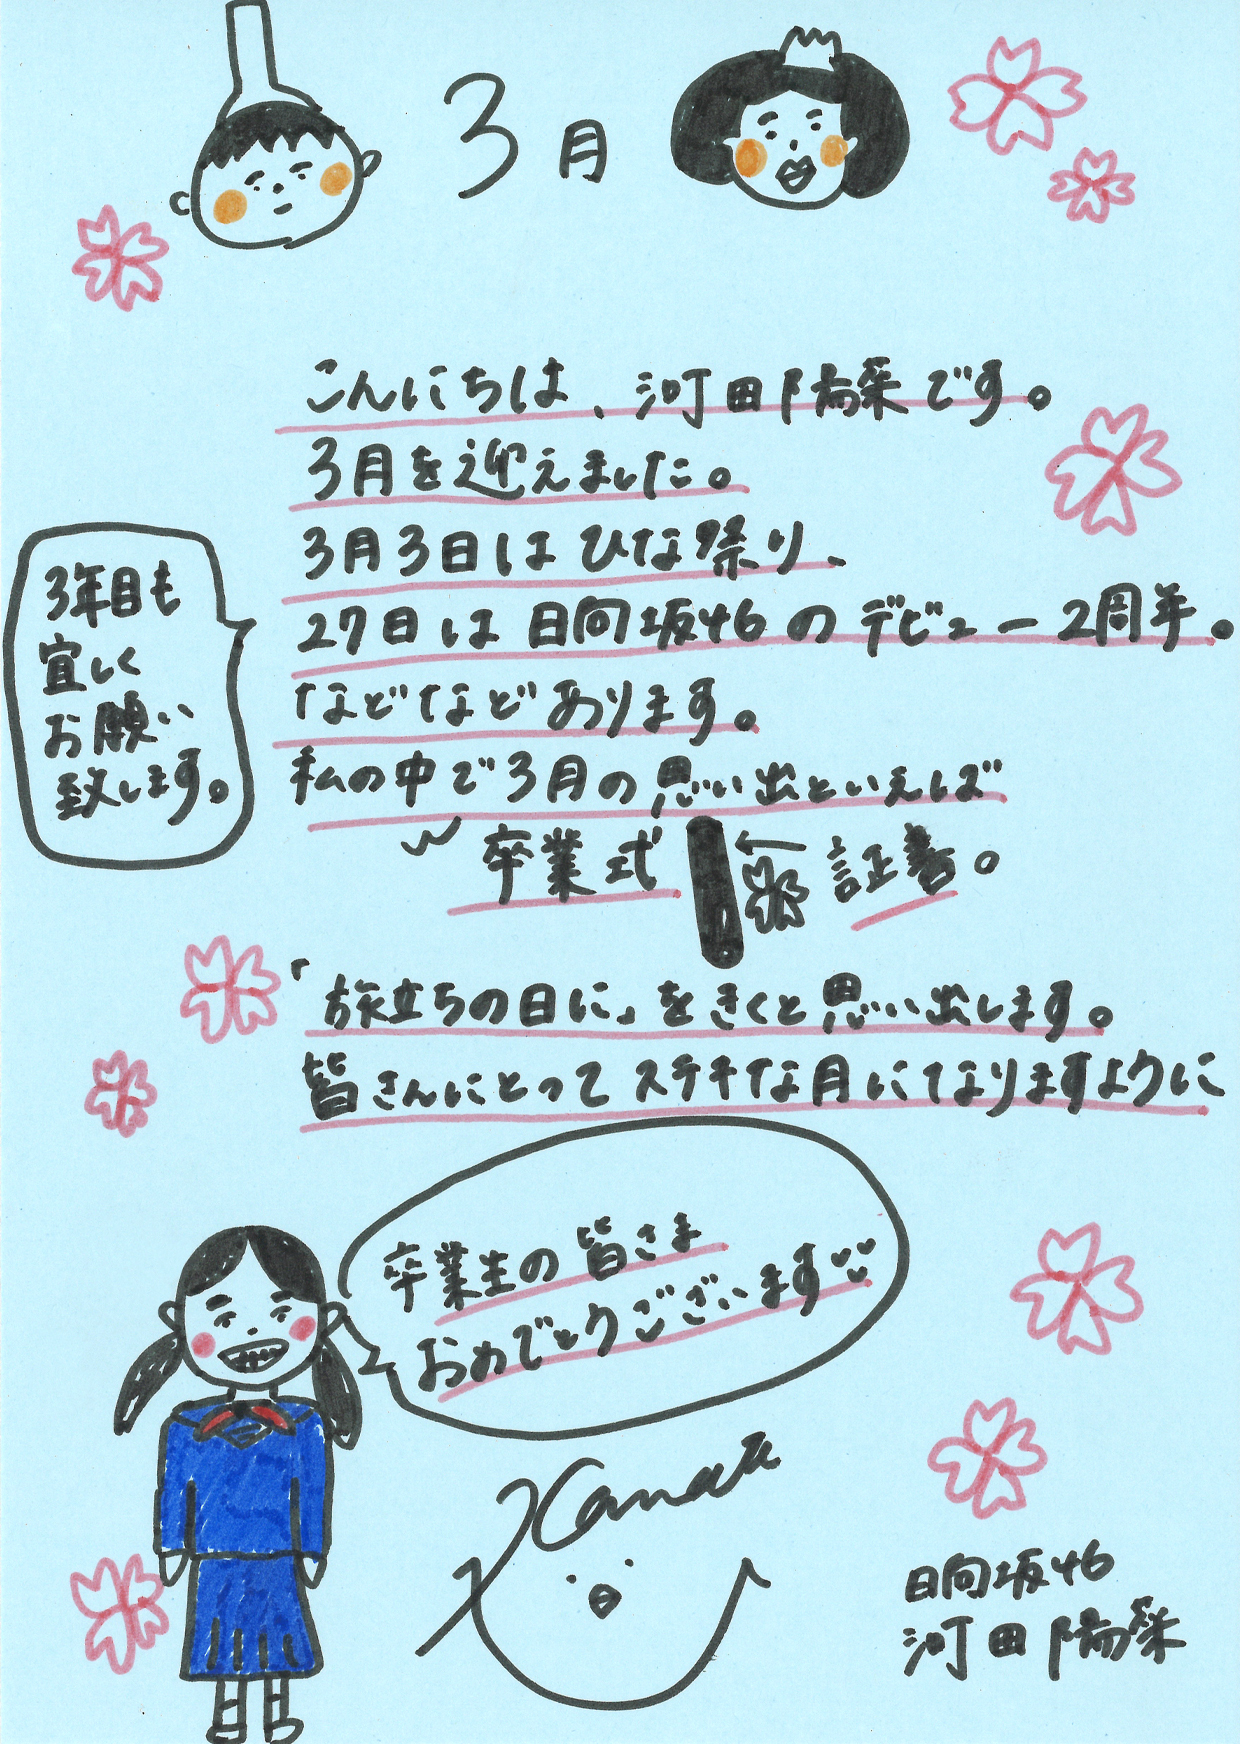 3月
こんにちは、河田陽菜です。
3月を迎えました。
3月3日はひな祭り、
27日は日向坂46のデビュー2周年。
などなどあります。
3年目も
宜しく
お願い
致します。
私の中で3月の思い出といえば
卒業式
証書。
「旅立ちの日に」をきくと思い出します。
皆さんにとってステキな月になりますように
卒業生の皆さま
おめでとうございます
Kanata
日向坂46
河田陽菜